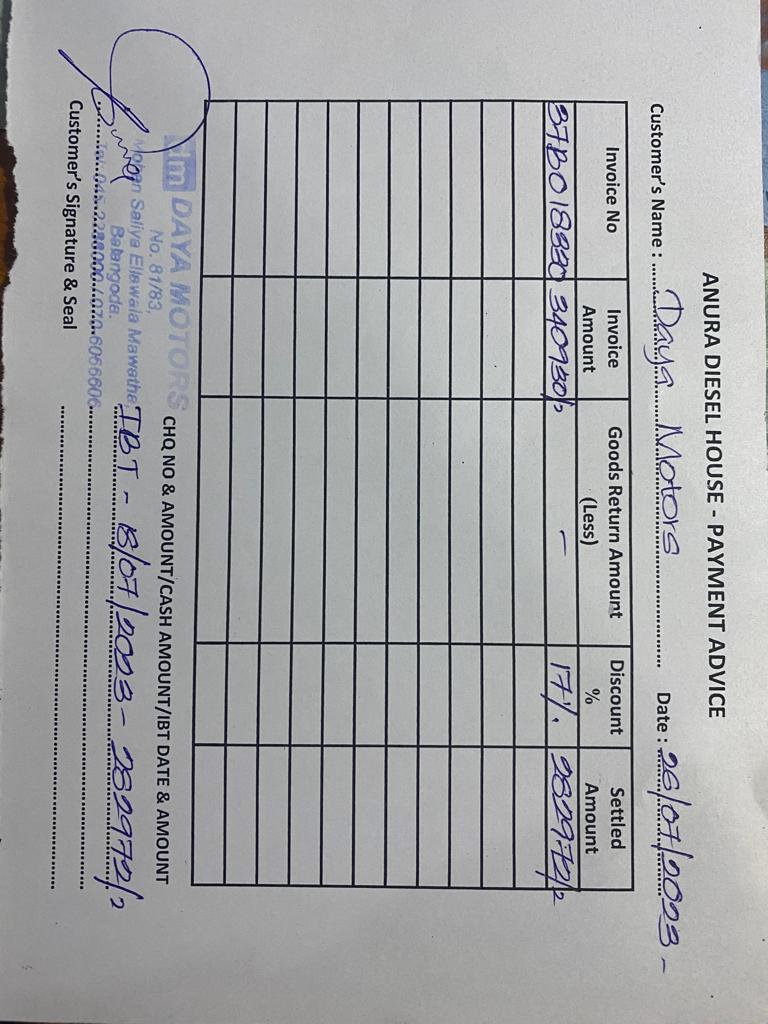 ANURA DIESEL HOUSE - PAYMENT ADVICE
Customer's Name : Daya Motors Date : 26/07/2023 -
Invoice No Invoice Amount Goods Return Amount (Less) Discount % Settled Amount
340930/= - 17% 282972/=
CHQ NO & AMOUNT/CASH AMOUNT/IBT DATE & AMOUNT
IBT - 18/07/2023 - 282972/=
dm DAYA MOTORS
No. 81/83,
Mohan Saliya Ellawala Mawatha
Balangoda.
070-6066606
Customer's Signature & Seal